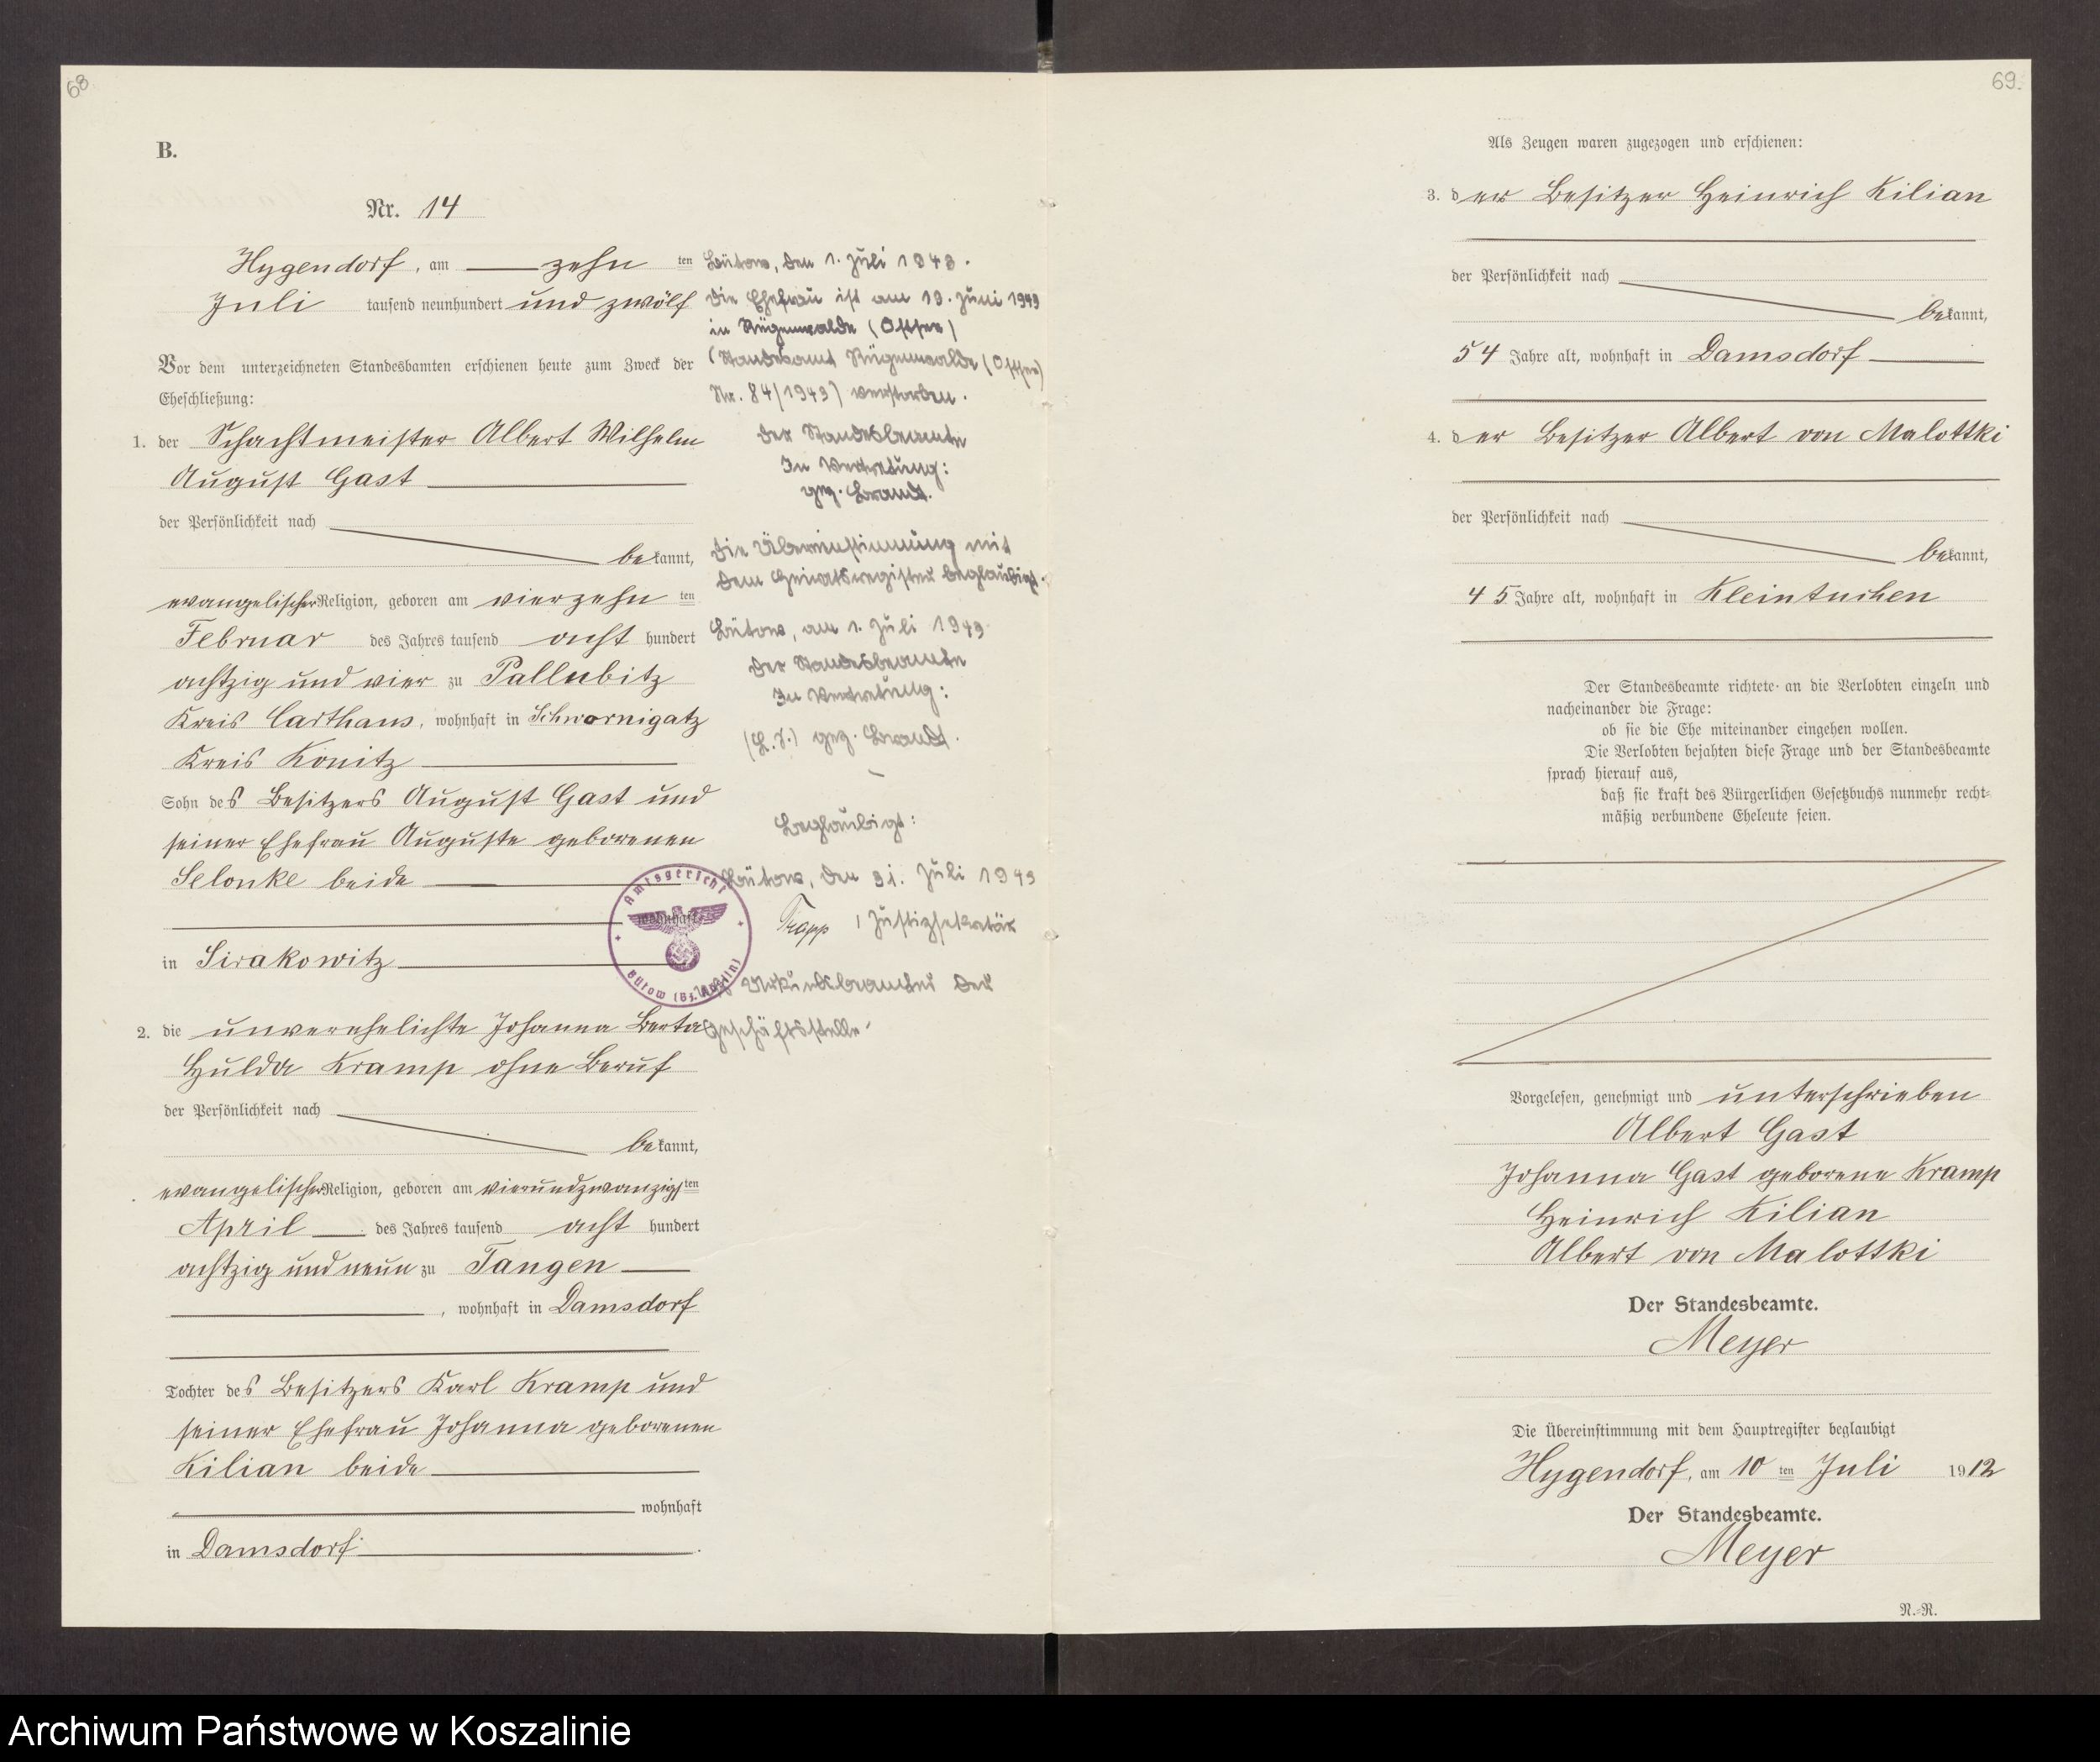 68
B.
Nr. 14
Hygendorf, am zehn ten
Juli tausend neunhundert und zwölf
Vor dem unterzeichneten Standesbamten erschienen heute zum Zweck der
Eheschließung:
1. der Schachtmeister Albert Wilhelm
August Gast
der Persönlichkeit nach
bekannt,
evangelischer Religion, geboren am vierzehn ten
Februar des Jahres tausend acht hundert
achtzig und vier zu Pallubitz
Kreis Carthaus, wohnhaft in Schwornigatz
Kreis Konitz
Sohn des Besitzers August Gast und
seiner Ehefrau Auguste geborenen
Selonke beide
wohnhaft
in Sirakowitz
2. die unverehelichte Johanna Berta
Hulda Kramp ohne Beruf
der Persönlichkeit nach
bekannt,
evangelischer Religion, geboren am vierundzwanzigsten
April des Jahres tausend acht hundert
achtzig und neun zu Tangen
, wohnhaft in Damsdorf
Tochter des Besitzers Karl Kramp und
seiner Ehefrau Johanna geborenen
Kilian beide
wohnhaft
in Damsdorf
Bütow, den 1. Juli 1943.
Die Ehefrau ist am 19. Juni 1943
in Rügenwalde (Ostsee)
(Standesamt Rügenwalde (Ostsee)
Nr. 84/1943) verstorben.
Der Standesbeamte
In Vertretung:
gez. Brandt.
Die Übereinstimmung mit
dem Heiratsregister beglaubigt.
Bütow, am 1. Juli 1943
Der Standesbeamte
In Vertretung:
(L.S.) gez. Brandt.
Beglaubigt:
Bütow, den 31. Juli 1943
Trapp, Justizsekretär
als Urkundsbeamter der
Geschäftsstelle.
Amtsgericht
Bütow (Bz. Köslin)
69.
Als Zeugen waren zugezogen und erschienen:
3. der Besitzer Heinrich Kilian
der Persönlichkeit nach
bekannt,
54 Jahre alt, wohnhaft in Damsdorf
4. der Besitzer Albert von Malottki
der Persönlichkeit nach
bekannt,
45 Jahre alt, wohnhaft in Kleintuchen
Der Standesbeamte richtete an die Verlobten einzeln und
nacheinander die Frage:
ob sie die Ehe miteinander eingehen wollen.
Die Verlobten bejahten diese Frage und der Standesbeamte
sprach hierauf aus,
daß sie kraft des Bürgerlichen Gesetzbuchs nunmehr recht-
mäßig verbundene Eheleute seien.
Vorgelesen, genehmigt und unterschrieben
Albert Gast
Johanna Gast geborene Kramp
Heinrich Kilian
Albert von Malottki
Der Standesbeamte.
Meyer
Die Übereinstimmung mit dem Hauptregister beglaubigt
Hygendorf, am 10 ten Juli 1912
Der Standesbeamte.
Meyer
N.-R.
Archiwum Państwowe w Koszalinie